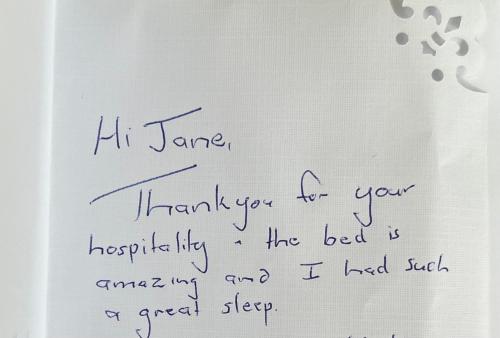 Hi Jane,
Thankyou for your
hospitality - the bed is
amazing and I had such
a great sleep.